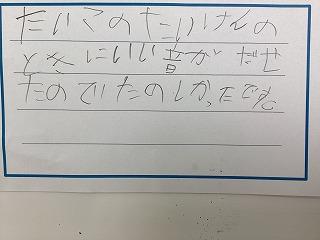 たいこのたいけんの
ときにいい音がだせ
たのでたのしかったです。